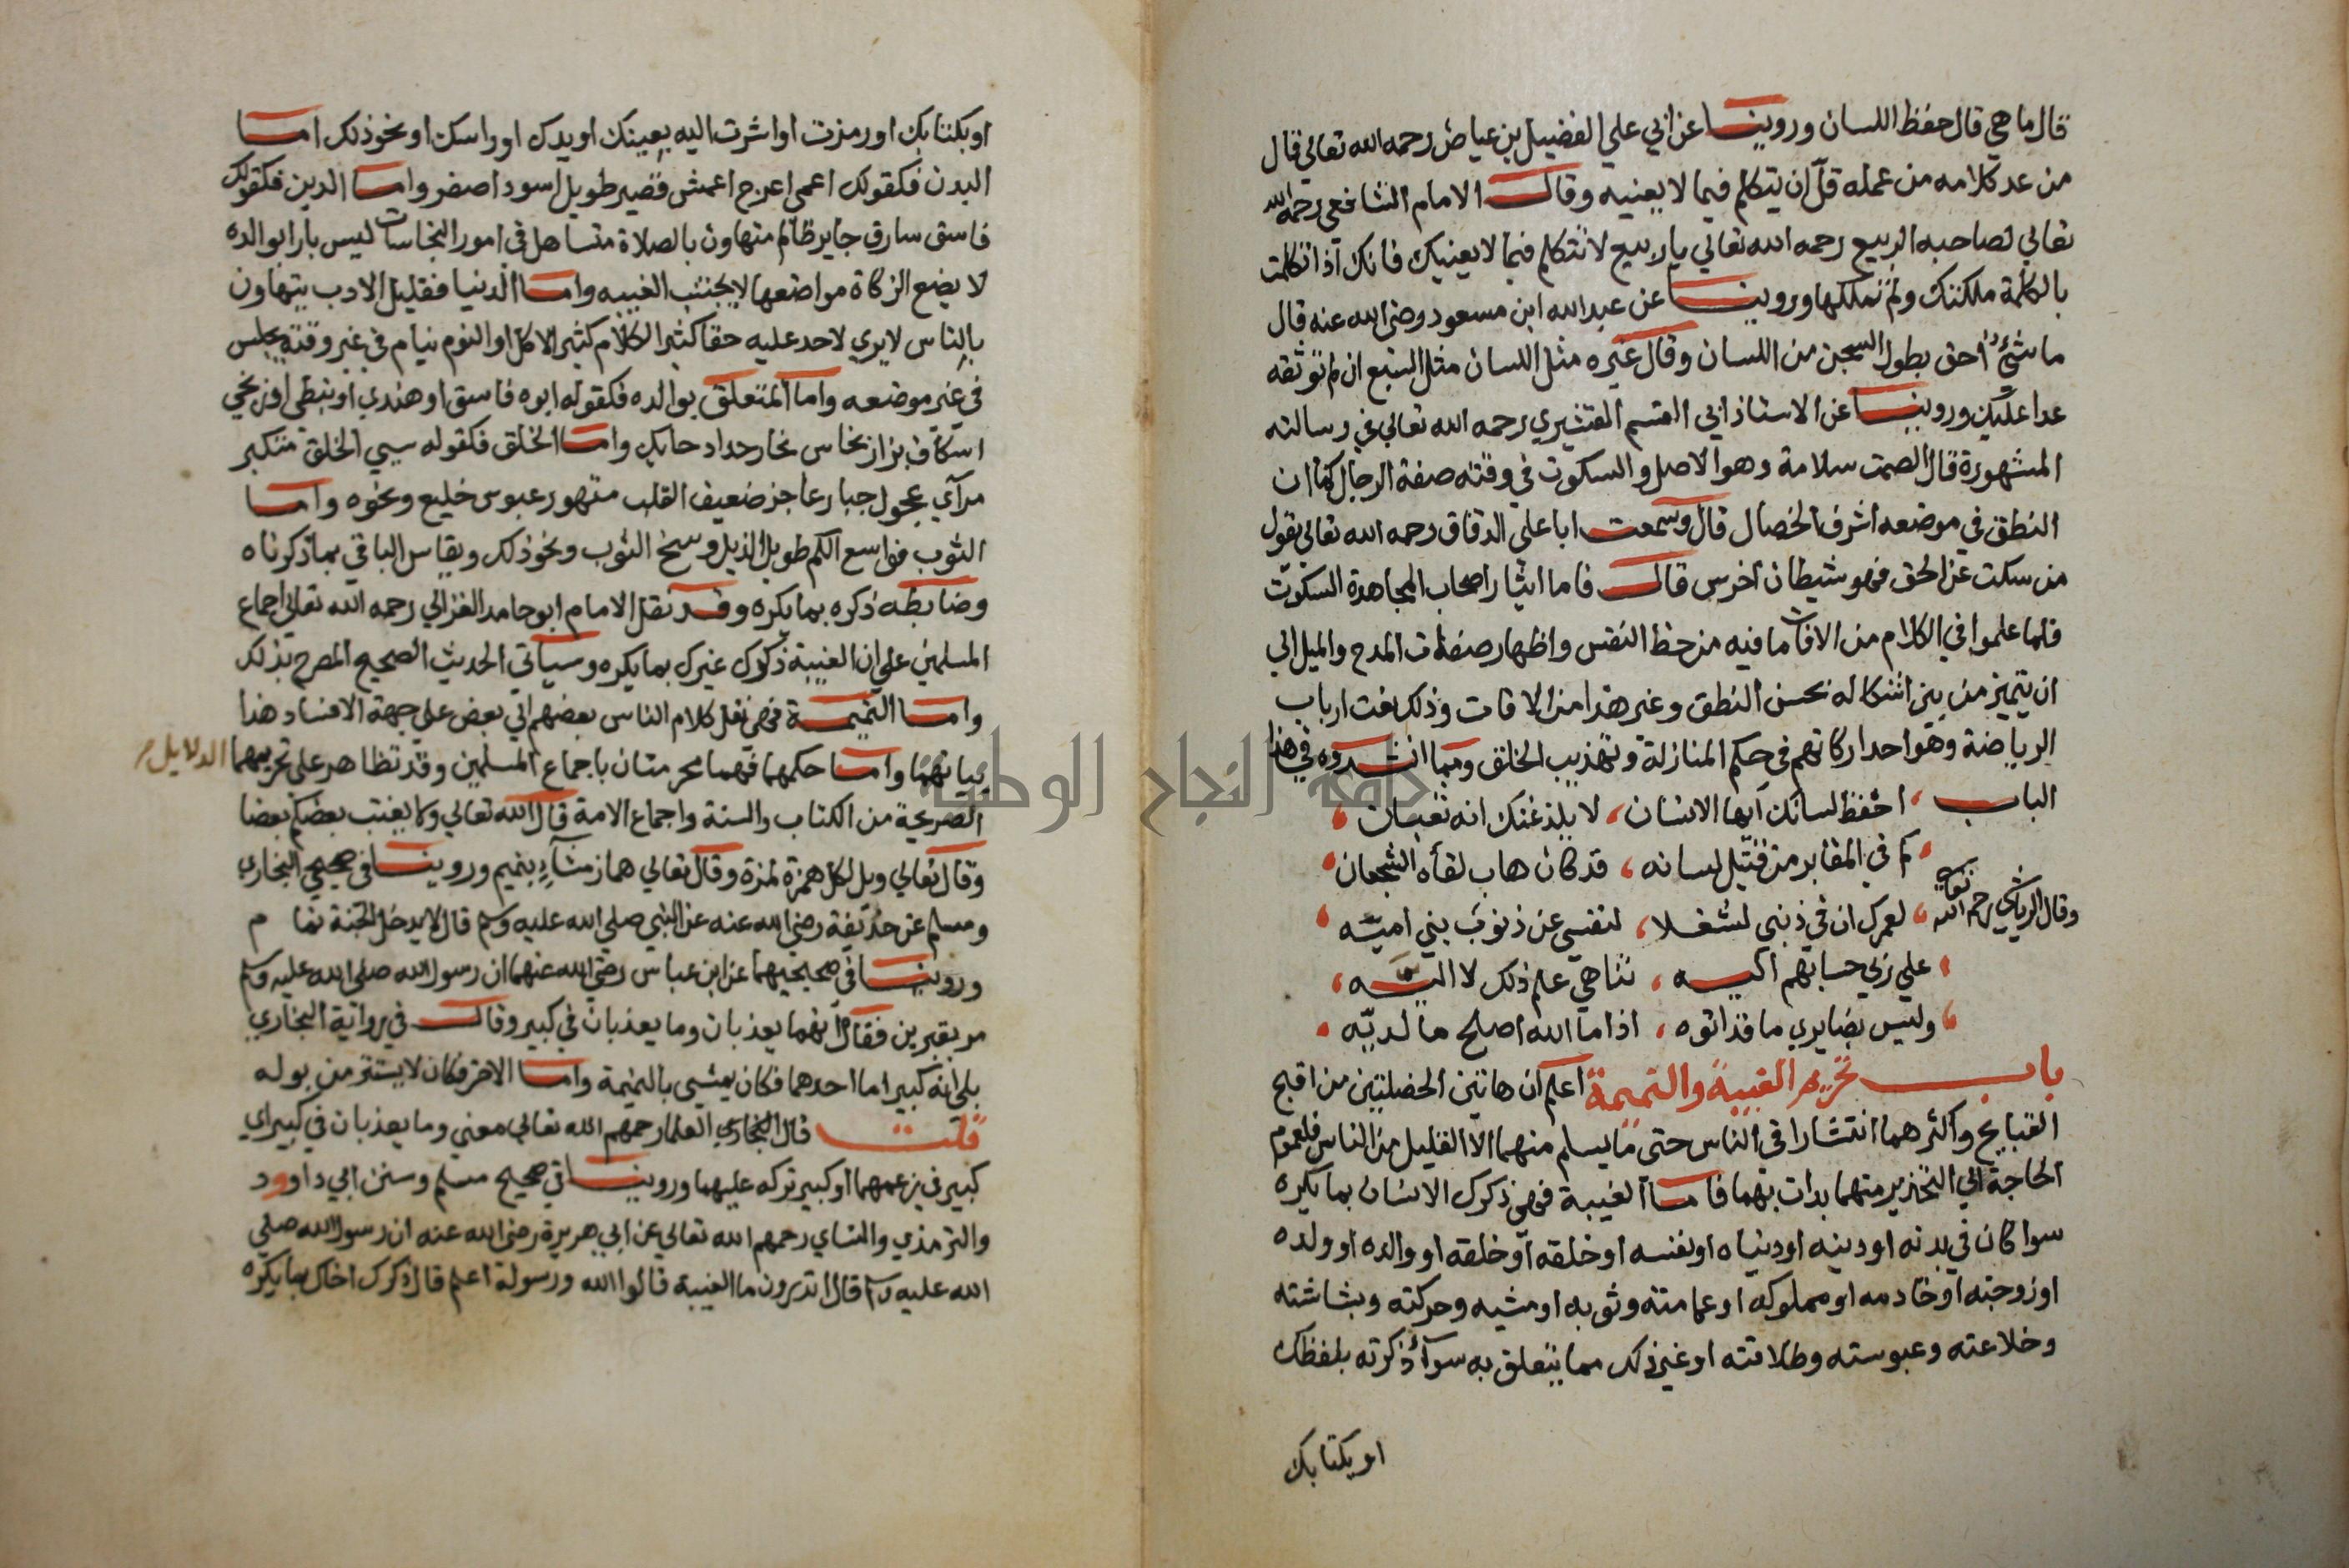 قال ماهي قال حفظ اللسان وروينا عن ابي علي الفضيل بن عياض رحمه الله تعالي قال
من عد كلامه من عمله قل ان يتكلم فيما لا يعنيه وقال الامام الشافعي رحمه الله
تعالي لصاحبه الربيع رحمه الله تعالي يا ربيع لا تتكلم فيما لا يعنيك فانك اذا تكلمت
بالكلمة ملكتك ولم تملكها وروينا عن عبد الله ابن مسعود رضي الله عنه قال
ما شيء احق بطول السجن من اللسان وقال غيره مثل اللسان مثل السبع ان لم توثقه
عدا عليك وروينا عن الاستاذ ابي القسم القشيري رحمه الله تعالي في رسالته
المشهورة قال الصمت سلامة وهو الاصل والسكوت في وقته صفة الرجال كما ان
النطق في موضعه اشرف الخصال قال وسمعت ابا علي الدقاق رحمه الله تعالي يقول
من سكت عن الحق فهو شيطان اخرس قال فاما ايثار اصحاب المجاهدة السكوت
فلما علموا في الكلام من الافات ما فيه من حظ النفس واظهار صفات المدح والميل الي
ان يتميز من بين اشكاله بحسن النطق وغير هذا من الافات وذلك نعت ارباب
الرياضة وهو احد اركانهم في حكم المنازلة وتهذيب الخلق ومما انشدوه في هذا
الباب احفظ لسانك ايها الانسان لا يلدغنك انه ثعبان
كم في المقابر من قتيل لسانه قد كان هاب لقاه الشجعان
وقال الرياشي رحمه الله تعالي لعمرك ان في ذنبي لشغلا لنفسي عن ذنوب بني اميه
علي ربي حسابهم اليه تناهي علم ذلك لا اليه
وليس بضايري ما قد اتوه اذا ما الله اصلح ما لديه
باب تحريم الغيبة والنميمة اعلم ان هاتين الخصلتين من اقبح
القبايح واكثرهما انتشارا في الناس حتي ما يسلم منهما الا القليل من الناس فلعموم
الحاجة الي التحذير منهما بدات بهما فاما الغيبة فهي ذكرك الانسان بما يكره
سوا كان في بدنه او دينه او دنياه او نفسه او خلقه او خلقه او والده او ولده
او زوجته او خادمه او مملوكه او عمامته وثوبه او مشيه وحركته وبشاشته
وخلاعته وعبوسته وطلاقته او غير ذلك مما يتعلق به سوآء ذكرته بلفظك
او بكتابك
او بكتابك او رمزت او اشرت اليه بعينك او يدك او راسك او نحو ذلك اما
البدن فكقولك اعمي اعرج اعمش قصير طويل اسود اصفر واما الدين فكقولك
فاسق سارق جاير ظالم متهاون بالصلاة متساهل في امور النجاسات ليس بارا بوالده
لا يضع الزكاة مواضعها لا يجتنب الغيبه واما الدنيا فقليل الادب يتهاون
بالناس لا يري لاحد عليه حقا كثير الكلام كثير الاكل او النوم ينام في غير وقته يجلس
في غير موضعه واما المتعلق بوالده فكقوله ابوه فاسق او هندي او نبطي او زنجي
اسكاف بزاز نخاس نجار حداد حايك واما الخلق فكقوله سيي الخلق متكبر
مرآي عجول جبار عاجز ضعيف القلب متهور عبوس خليع ونحوه واما
الثوب فواسع الكم طويل الذيل وسخ الثوب ونحو ذلك ويقاس الباقي بما ذكرناه
وضابطه ذكره بما يكره وقد نقل الامام ابو حامد الغزالي رحمه الله تعالي اجماع
المسلمين علي ان الغيبة ذكرك غيرك بما يكره وسياتي الحديث الصحيح المصرح بذلك
واما النميمة فهي نقل كلام الناس بعضهم الي بعض علي جهة الافساد هذا
بيانهما واما حكمهما فهما محرمتان باجماع المسلمين وقد تظاهر علي تحريمهما الدلايل
الصريحة من الكتاب والسنة واجماع الامة قال الله تعالي ولا يغتب بعضكم بعضا
وقال تعالي ويل لكل همزة لمزة وقال تعالي هماز مشآء بنميم وروينا في صحيحي البخاري
ومسلم عن حذيفة رضي الله عنه عن النبي صلي الله عليه وسلم قال لا يدخل الجنة نما م
وروينا في صحيحيهما عن ابن عباس رضي الله عنهما ان رسول الله صلي الله عليه وسلم
مر بقبرين فقال انهما يعذبان وما يعذبان في كبير وقال في رواية البخاري
بلي انه كبير اما احدهما فكان يمشي بالنميمة واما الاخر فكان لا يستتر من بوله
قلت قال البخاري العلما رحمهم الله تعالي معني وما يعذبان في كبير اي
كبير في زعمهما او كبير تركه عليهما وروينا في صحيح مسلم وسنن ابي داوود
والترمذي والنساي رحمهم الله تعالي عن ابي هريرة رضي الله عنه ان رسول الله صلي
الله عليه وسلم قال اتدرون ما الغيبة قالوا الله ورسوله اعلم قال ذكرك اخاك بما يكره
جامعة النجاح الوطنية